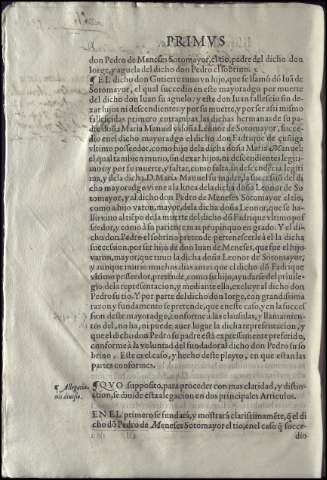 PRIMVS
don Pedro de Meneses Sotomayor, el tio, pedre del dicho don
Iorge, y aguela del dicho don Pedro el sobrino.
¶ EL dicho don Gutierre tuuo vn hijo, que se llamò dõ Iuã de
Sotomayor, el qual succedio en este mayoradgo por muerte
del dicho don Iuan su aguelo: y este don Iuan fallescio sin de-
xar hijos ni descendientes, y por su muerte, y por ser assi mismo
fallescidas primero entrambas las dichas hermanas de su pa-
dre doña Maria Manuel y doña Leonor de Sotomayor, succe-
dio en el dicho mayoradgo el dicho don Fadrique de çuñiga
vltimo posseedor, como hijo dela dicha doña Maria Manuel:
el qual tambien murio, sin dexar hijos, ni descendientes legiti-
mos: y por su muerte, y faltar, como falta, su descendẽcia legiti-
ma, y dela dicha D. Maria Manuel su madre, la successiõ del di-
cho mayoradgo viene a la linea dela dicha doña Leonor de So-
tomayor, y al dicho don Pedro de Meneses Sotomayor el tio,
como a hijo varon, mayor, dela dicha doña Leonor, que se ha-
llo viuo al tiẽpo dela muerte del dicho dõ Fadrique vltimo pos-
seedor, y como a su pariente mas propinquo en grado. Y el di-
cho don Pedro el sobrino pretende pertenescerle a el la dicha
succession, por ser hijo de don Iuan de Meneses, que fue el hijo
varon, mayor, que tuuo la dicha doña Leonor de Sotomayor,
y aunque murio muchos dias antes que el dicho dõ Fadrique
vltimo posseedor, pretende, como su hijo, ayudarse del priuile-
gio dela representacion, y mediante ella, excluyr al dicho don
Pedro su tio. Y por parte del dicho don Iorge, con grandissima
razon y fundamento se pretende, que en este caso, y en la succes-
sion deste mayoradgo, conforme a las clausulas, y llamamien-
tos del, no ha, ni puede auer lugar la dicha representacion, y
que el dicho don Pedro su padre està expressamente preferido,
conforme à la voluntad del fundador al dicho don Pedro su so-
brino. Este es el caso, y hecho deste pleyto, en que estan las
partes conformes.
¶ Allegacio-
nis diuisio.
¶ QVO supposito, para proceder con mas claridad, y distin-
ction, se diuide esta alegacion en dos principales Articulos.
EN EL primero se fundarà, y mostrarà clarissimamẽte, q̃ el di
cho dõ Pedro de Meneses Sotomayor el tio, en el caso q̃ succe-
dio